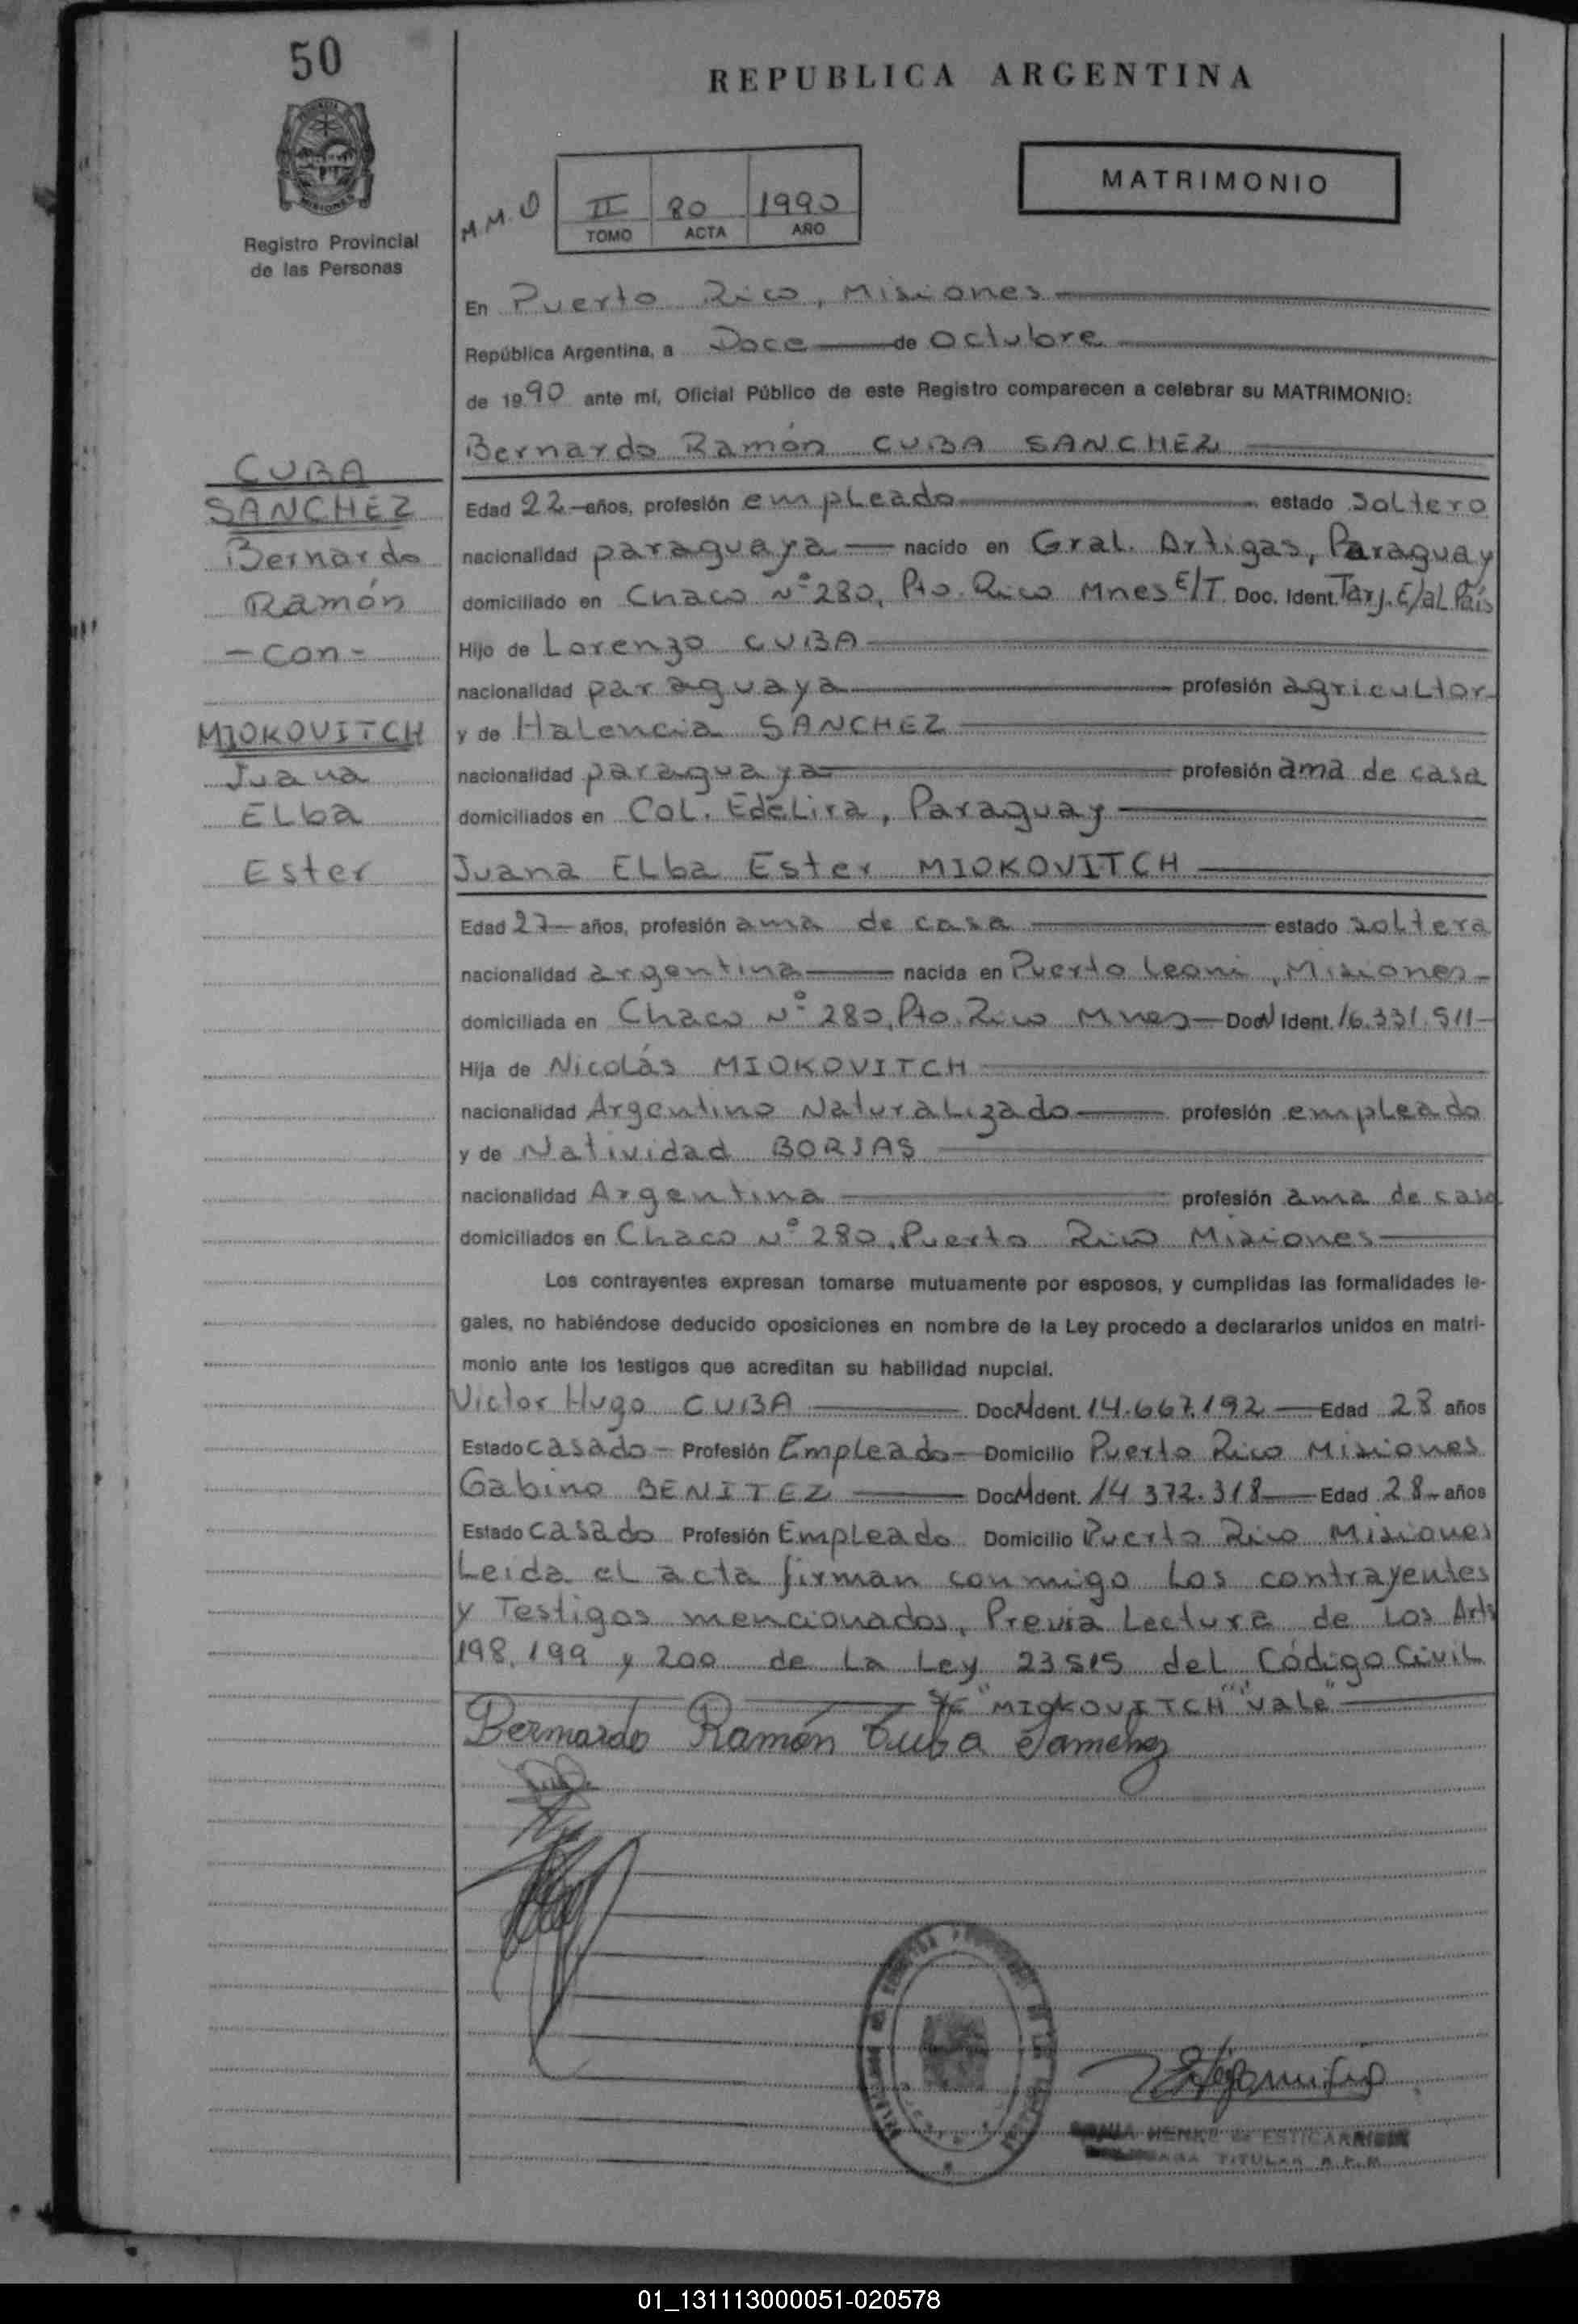 50
REPUBLICA ARGENTINA
MATRIMONIO
M.M.O
II 80 1990
TOMO ACTA AÑO
Registro Provincial
de las Personas
En Puerto Rico, Misiones
República Argentina, a Doce de Octubre
de 1990 ante mí, Oficial Público de este Registro comparecen a celebrar su MATRIMONIO:
Bernardo Ramón CUBA SANCHEZ
CUBA
SANCHEZ
Bernardo
Ramón
- con -
MIOKOVITCH
Juana
ELba
Ester
Edad 22 años, profesión empleado estado soltero
nacionalidad paraguaya nacido en Gral. Artigas, Paraguay
domiciliado en Chaco Nº 280, Pto. Rico Mnes E/T. Doc. Ident. Tarj. E/al País
Hijo de Lorenzo CUBA
nacionalidad paraguaya profesión agricultor
y de Halencia SANCHEZ
nacionalidad paraguaya profesión ama de casa
domiciliados en Col. Edelira, Paraguay
Juana ELba Ester MIOKOVITCH
Edad 27 años, profesión ama de casa estado soltera
nacionalidad argentina nacida en Puerto Leoni, Misiones
domiciliada en Chaco Nº 280, Pto. Rico Mnes Doc. Ident. 16.331.511
Hija de Nicolás MIOKOVITCH
nacionalidad Argentino Naturalizado profesión empleado
y de Natividad BORJAS
nacionalidad Argentina profesión ama de casa
domiciliados en Chaco Nº 280, Puerto Rico Misiones
Los contrayentes expresan tomarse mutuamente por esposos, y cumplidas las formalidades le-
gales, no habiéndose deducido oposiciones en nombre de la Ley procedo a declararlos unidos en matri-
monio ante los testigos que acreditan su habilidad nupcial.
Victor Hugo CUBA Doc. Ident. 14.667.192 Edad 28 años
Estado casado Profesión Empleado Domicilio Puerto Rico Misiones
Gabino BENITEZ Doc. Ident. 14.372.318 Edad 28 años
Estado casado Profesión Empleado Domicilio Puerto Rico Misiones
Leida el acta firman conmigo los contrayentes
y Testigos mencionados, Previa Lectura de Los Arts
198, 199 y 200 de La Ley 23515 del Código Civil
S/E "MIOKOVITCH" "Vale"
Bernardo Ramón Cuba Sanchez
TITULAR R.P.P.
01_131113000051-020578